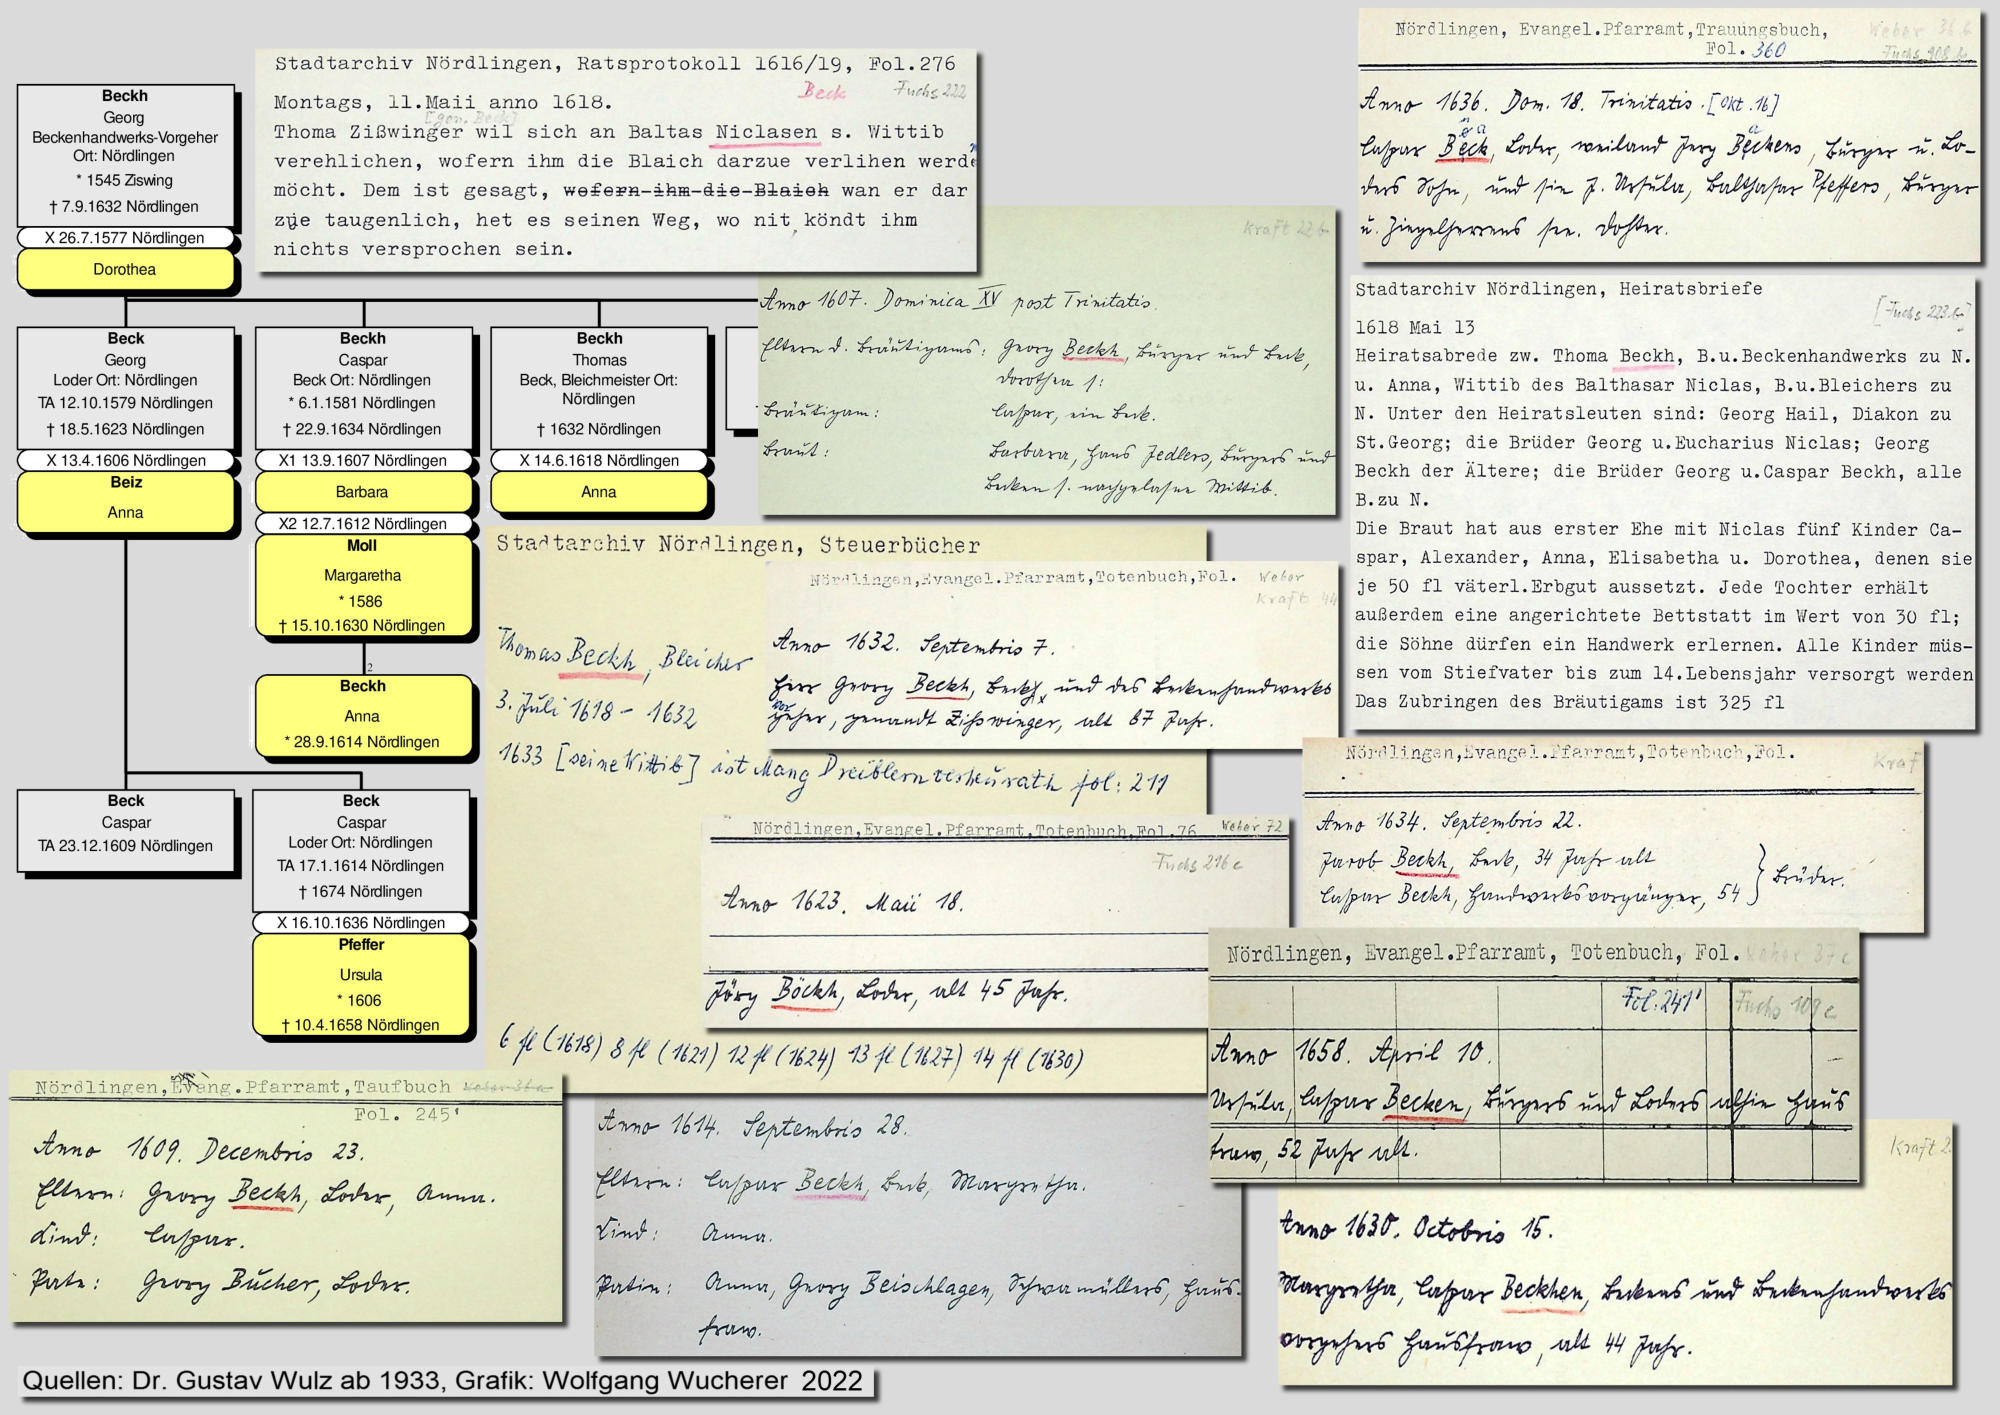 Beckh
Georg
Beckenhandwerks-Vorgeher
Ort: Nördlingen
* 1545 Ziswing
† 7.9.1632 Nördlingen
X 26.7.1577 Nördlingen
Dorothea
Beck
Georg
Loder Ort: Nördlingen
TA 12.10.1579 Nördlingen
† 18.5.1623 Nördlingen
X 13.4.1606 Nördlingen
Beiz
Anna
Beckh
Caspar
Beck Ort: Nördlingen
* 6.1.1581 Nördlingen
† 22.9.1634 Nördlingen
X1 13.9.1607 Nördlingen
Barbara
X2 12.7.1612 Nördlingen
Moll
Margaretha
* 1586
† 15.10.1630 Nördlingen
2
Beckh
Anna
* 28.9.1614 Nördlingen
Beckh
Thomas
Beck, Bleichmeister Ort:
Nördlingen
† 1632 Nördlingen
X 14.6.1618 Nördlingen
Anna
Beck
Caspar
TA 23.12.1609 Nördlingen
Beck
Caspar
Loder Ort: Nördlingen
TA 17.1.1614 Nördlingen
† 1674 Nördlingen
X 16.10.1636 Nördlingen
Pfeffer
Ursula
* 1606
† 10.4.1658 Nördlingen
Stadtarchiv Nördlingen, Ratsprotokoll 1616/19, Fol.276
Beck Fuchs 222
Montags, 11.Maii anno 1618.
[gen. Beck]
Thoma Zißwinger wil sich an Baltas Niclasen s. Wittib
verehlichen, wofern ihm die Blaich darzue verlihen werden
möcht. Dem ist gesagt, wofern ihm die Blaich wan er dar
zue taugenlich, het es seinen Weg, wo nit, köndt ihm
nichts versprochen sein.
Kraft 22b
Anno 1607. Dominica XV post Trinitatis.
Eltern d. Bräutigams: Georg Beckh, Bürger und Beck,
Dorothea s:
Bräutigam: Caspar, ein Beck.
Braut: Barbara, Hans Jedlers, Bürgers und
Becken s. nachgelasne Wittib.
Nördlingen, Evangel.Pfarramt,Trauungsbuch,
Fol. 360
Weber 36 b
Fuchs 908
Anno 1636. Dom. 18. Trinitatis. [Okt. 16]
Caspar Beck, Loder, weiland Jerg Beckens, Bürger u. Lo-
ders Sohn, und sie J. Ursula, Balthasar Pfeffers, Bürger
u. Ziegelherrens see. Dohter.
Stadtarchiv Nördlingen, Heiratsbriefe
[Fuchs 223 b]
1618 Mai 13
Heiratsabrede zw. Thoma Beckh, B.u.Beckenhandwerks zu N.
u. Anna, Wittib des Balthasar Niclas, B.u.Bleichers zu
N. Unter den Heiratsleuten sind: Georg Hail, Diakon zu
St.Georg; die Brüder Georg u.Eucharius Niclas; Georg
Beckh der Ältere; die Brüder Georg u.Caspar Beckh, alle
B.zu N.
Die Braut hat aus erster Ehe mit Niclas fünf Kinder Ca-
spar, Alexander, Anna, Elisabetha u. Dorothea, denen sie
je 50 fl väterl.Erbgut aussetzt. Jede Tochter erhält
außerdem eine angerichtete Bettstatt im Wert von 30 fl;
die Söhne dürfen ein Handwerk erlernen. Alle Kinder müs-
sen vom Stiefvater bis zum 14.Lebensjahr versorgt werden
Das Zubringen des Bräutigams ist 325 fl
Stadtarchiv Nördlingen, Steuerbücher
Thomas Beckh, Bleicher
3. Juli 1618 - 1632
1633 [seine Wittib] ist Mang Dreiblern verheurath fol: 211
6 fl (1618) 8 fl (1621) 12 fl (1624) 13 fl (1627) 14 fl (1630)
Nördlingen,Evangel.Pfarramt,Totenbuch,Fol. Weber
Kraft 44
Anno 1632. Septembris 7.
Herr Georg Beckh, Beckh, und des Beckenhandwerks
vorgeher, genandt Zißwinger, alt 87 Jahr.
Nördlingen,Evangel.Pfarramt,Totenbuch,Fol.76 Weber 72
Fuchs 216 c
Anno 1623. Maii 18.
Jörg Böckh, Loder, alt 45 Jahr.
Nördlingen,Evangel.Pfarramt,Totenbuch,Fol.
Kraf
Anno 1634. Septembris 22.
Jacob Beckh, Beck, 34 Jahr alt
Caspar Beckh, Handwerksvorgänger, 54
Brüder.
Nördlingen, Evangel.Pfarramt, Totenbuch, Fol. Weber 37 c
Fol. 241' Fuchs 109 c
Anno 1658. April 10.
Ursula, Caspar Becken, Bürgers und Loders alhie Haus
fraw, 52 Jahr alt.
Nördlingen,Evang.Pfarramt,Taufbuch Weber 36 a
Fol. 245'
Anno 1609. Decembris 23.
Eltern: Georg Beckh, Loder, Anna.
Kind: Caspar.
Pate: Georg Bücher, Loder.
Anno 1614. Septembris 28.
Eltern: Caspar Beckh, Beck, Margretha.
Kind: Anna.
Patin: Anna, Georg Beischlagen, Schwamüllers, Haus-
fraw.
Kraft 2
Anno 1630. Octobris 15.
Margretha, Caspar Beckhen, Beckens und Beckenhandwerks
vorgehers Hausfraw, alt 44 Jahr.
Quellen: Dr. Gustav Wulz ab 1933, Grafik: Wolfgang Wucherer 2022